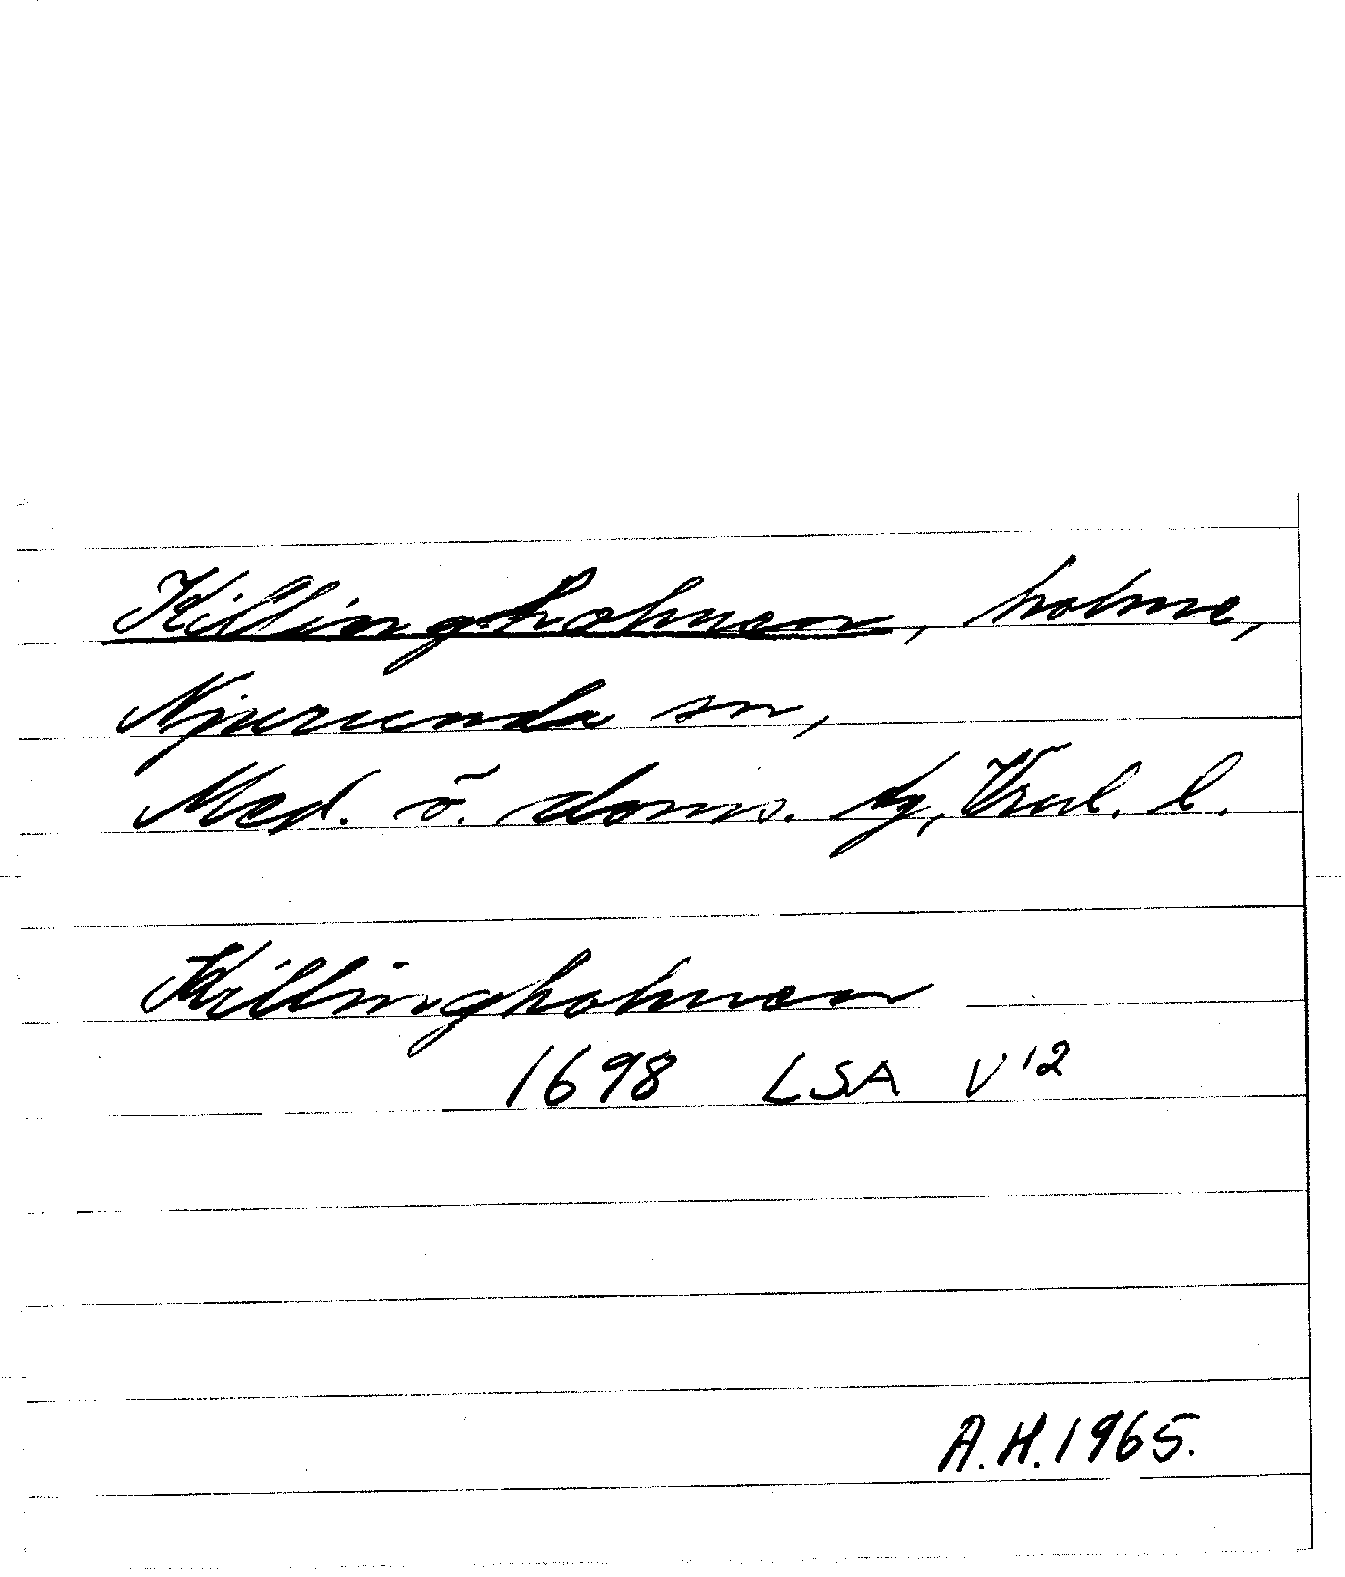 Killingholmen, holme,
Njurunda sn,
Med. ö. doms. tg, Vnrl. l.
Killingholmen
1698 LSA V 12
A.H. 1965.